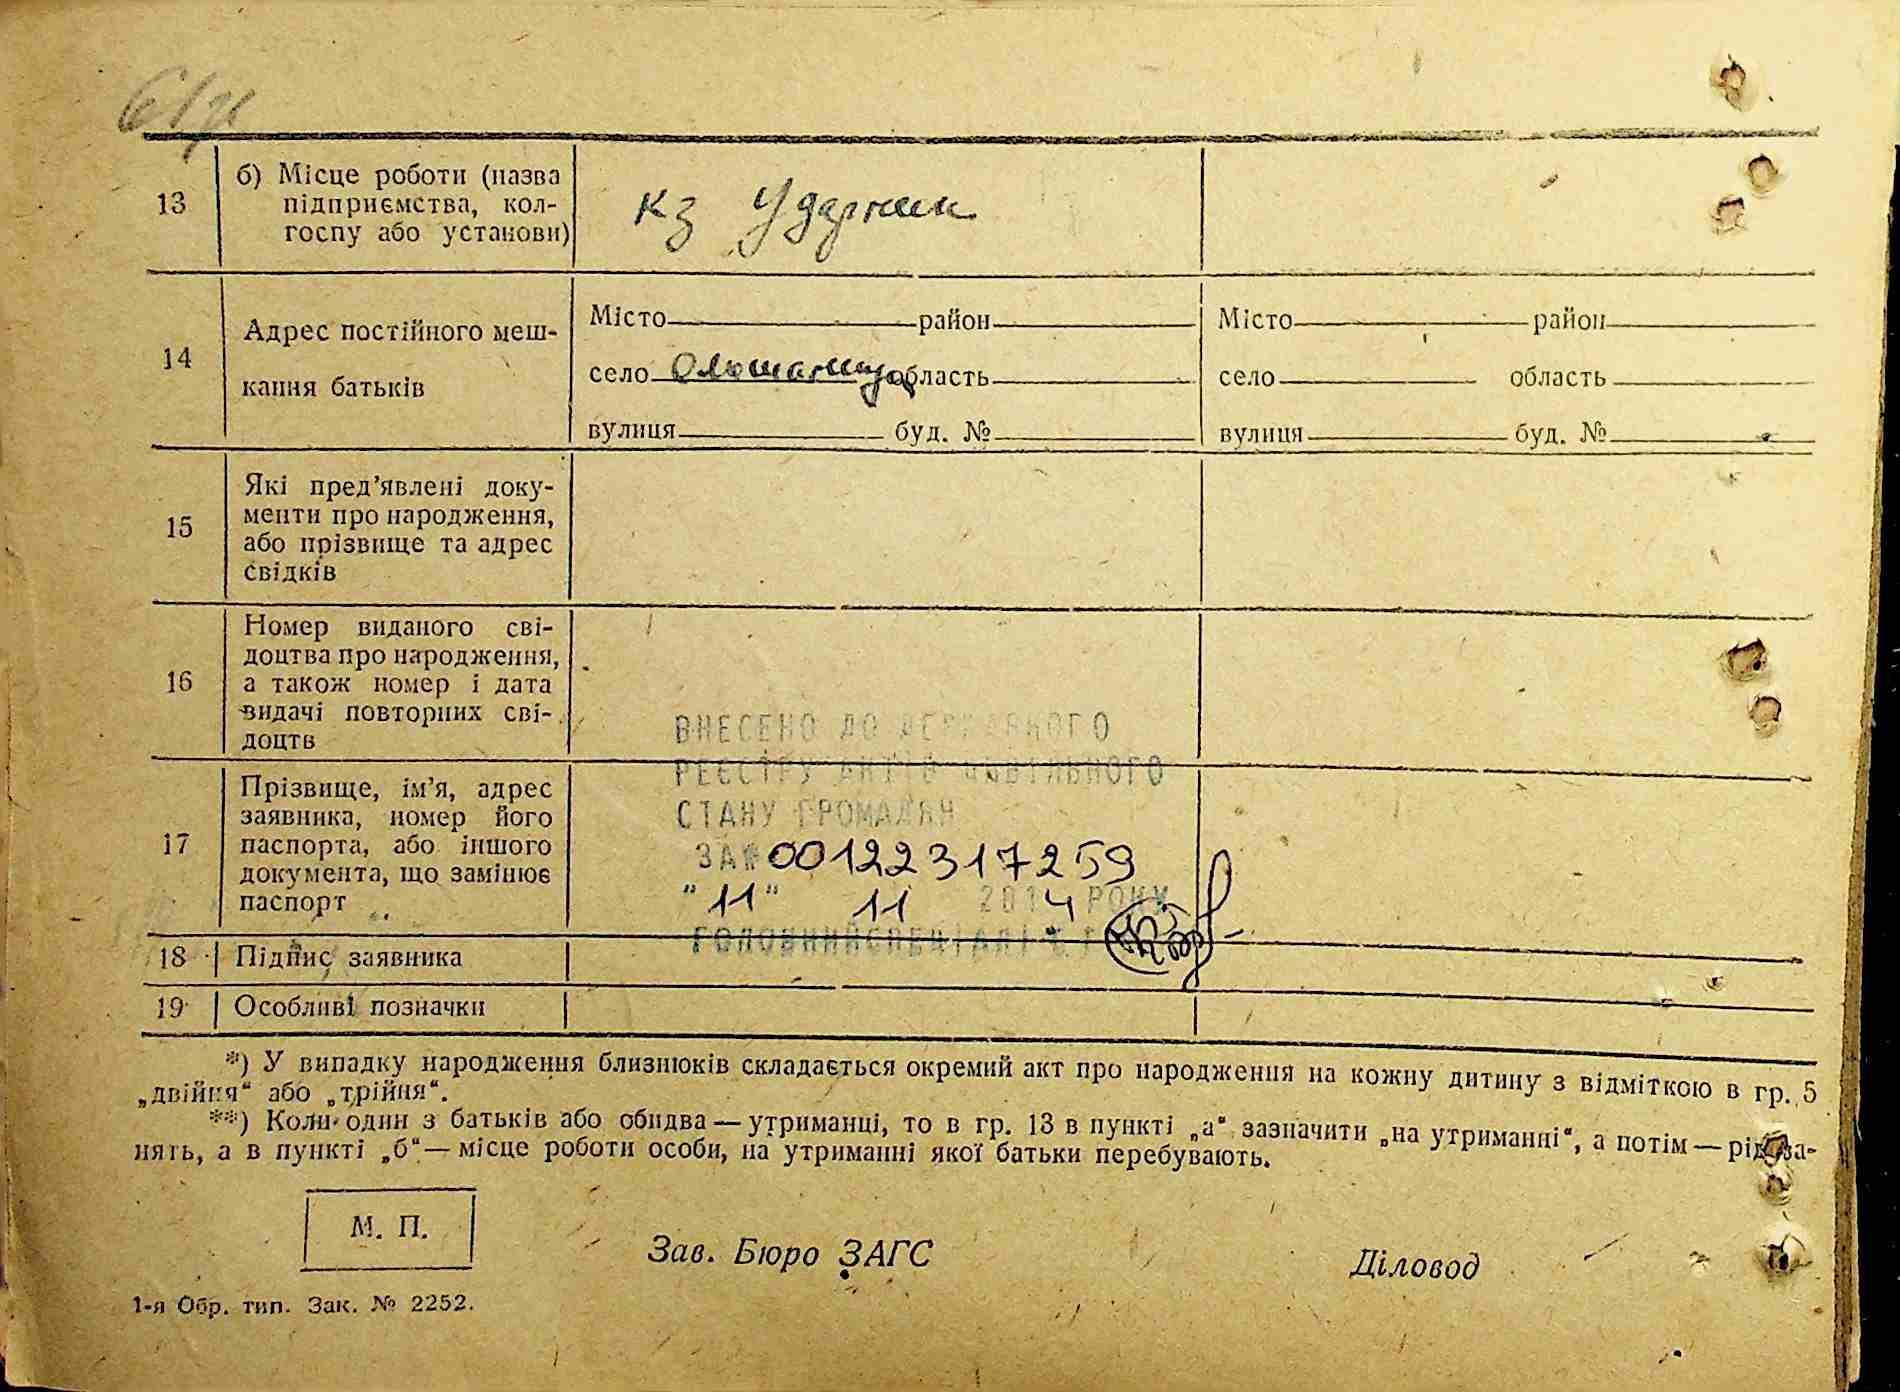 13
б) Місце роботи (назва
підприємства, кол-
госпу або установи)
кз Ударник
14
Адрес постійного меш-
кання батьків
Місто район
село область
вулиця буд. №
Місто район
село область
вулиця буд. №
15
Які пред’явлені доку-
менти про народження,
або прізвище та адрес
свідків
16
Номер виданого сві-
доцтва про народження,
а також номер і дата
видачі повторних сві-
доцтв
17
Прізвище, ім’я, адрес
заявника, номер його
паспорта, або іншого
документа, що замінює
паспорт
ВНЕСЕНО ДО ДЕРЖАВНОГО
РЕЄСТРУ АКТІВ ЦИВІЛЬНОГО
СТАНУ ГРОМАДЯН
ЗА № 00122317259
"11" 11 2014 РОКУ
ГОЛОВНИЙ СПЕЦІАЛІСТ
18
Підпис заявника
19
Особливі позначки
*) У випадку народження близнюків складається окремий акт про народження на кожну дитину з відміткою в гр. 5
„двійня“ або „трійня“.
**) Коли один з батьків або обидва — утриманці, то в гр. 13 в пункті „а“ зазначити „на утриманні“, а потім — рід за-
нять, а в пункті „б“ — місце роботи особи, на утриманні якої батьки перебувають.
М. П.
Зав. Бюро ЗАГС
Діловод
1-я Обр. тип. Зак. № 2252.